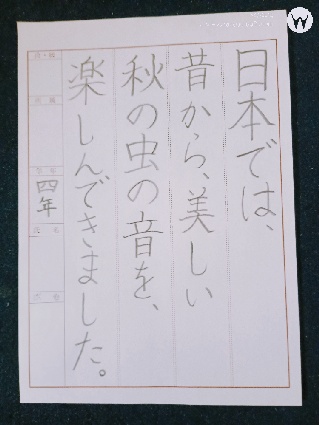 日本では、
昔から、美しい
秋の虫の音を、
楽しんできました。
四年